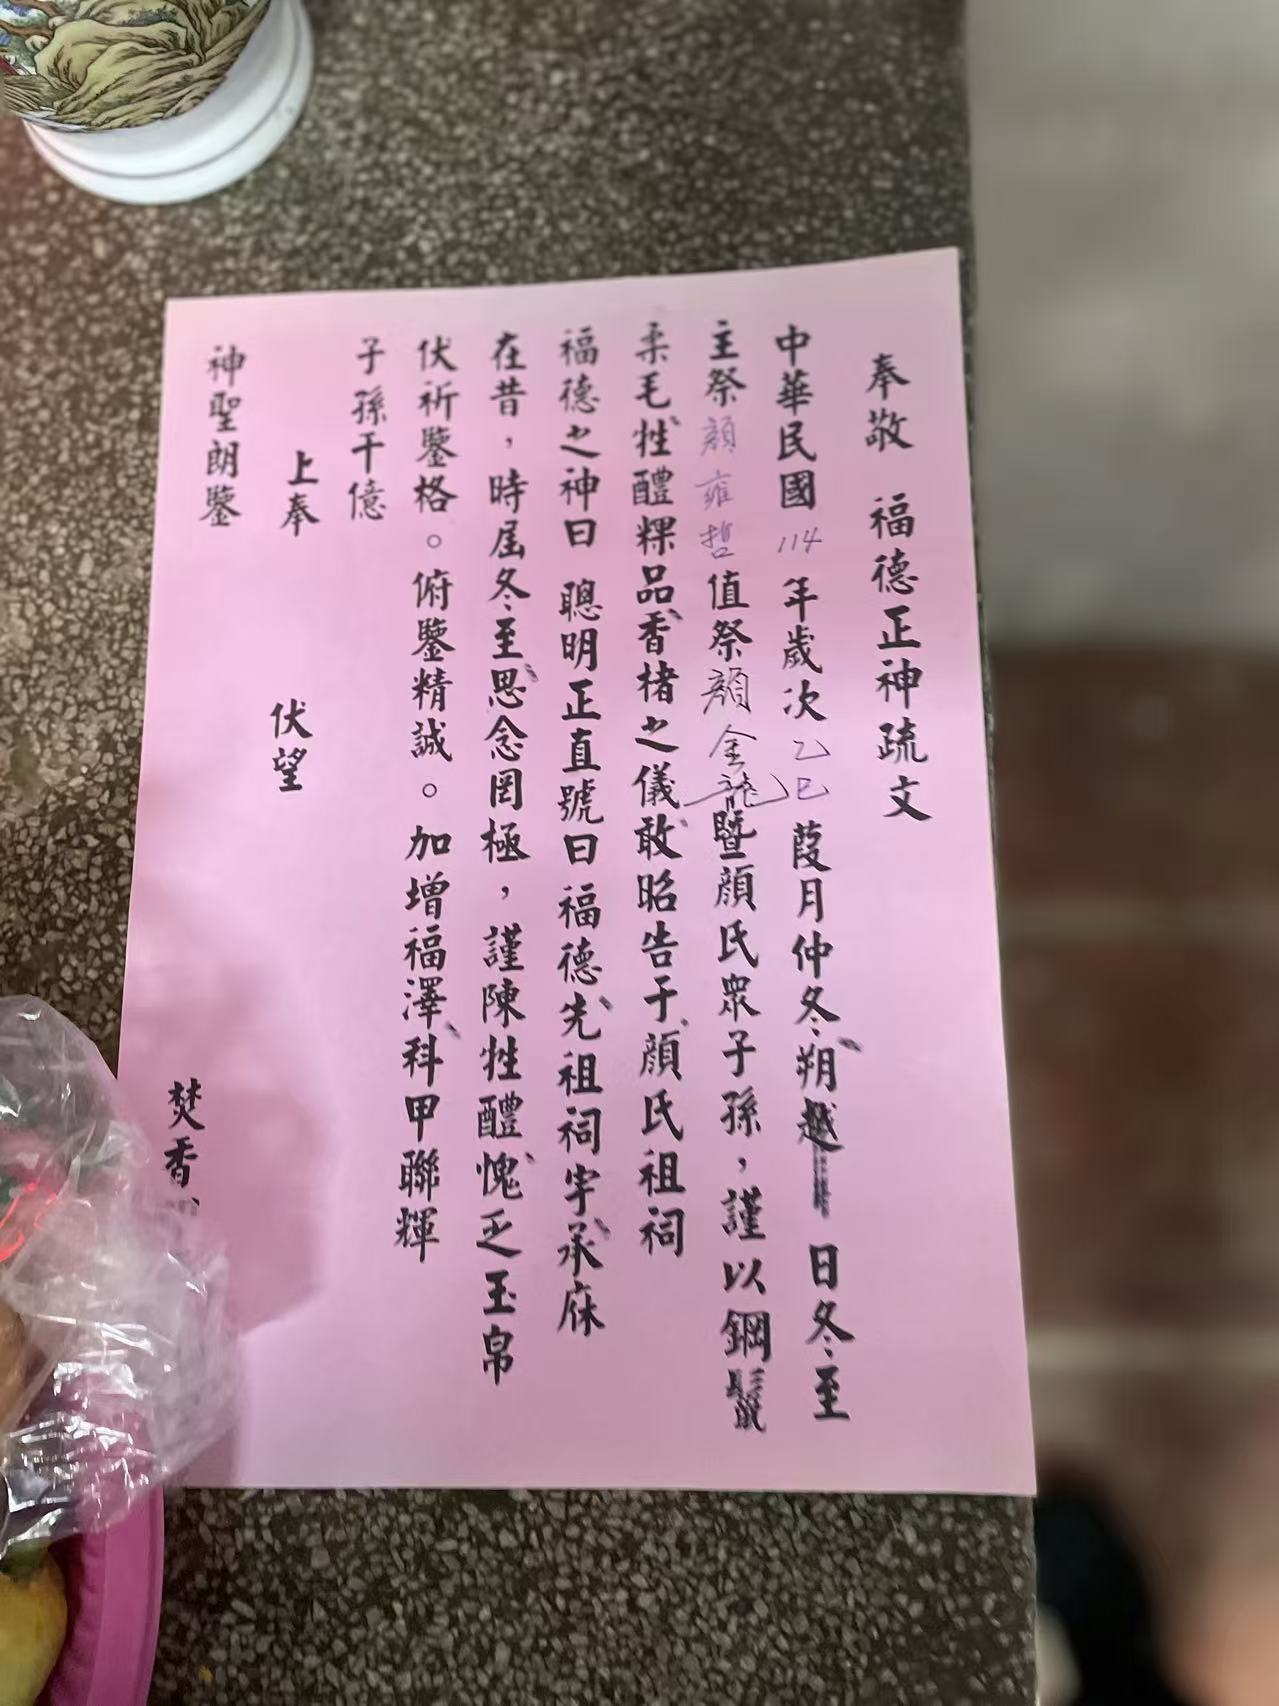 奉敬 福德正神疏文
中華民國114年歲次乙巳葭月仲冬朔越 日冬至
主祭顏雍哲值祭顏金龍暨顏氏眾子孫,謹以鋼鬣
柔毛牲醴粿品香楮之儀敢昭告于顏氏祖祠
福德之神曰 聰明正直號曰福德先祖祠宇承庥
在昔,時屆冬至思念罔極,謹陳牲醴愧乏玉帛
伏祈鑒格。俯鑒精誠。加增福澤科甲聯輝
子孫千億
上奉 伏望
神聖朗鑒
焚香